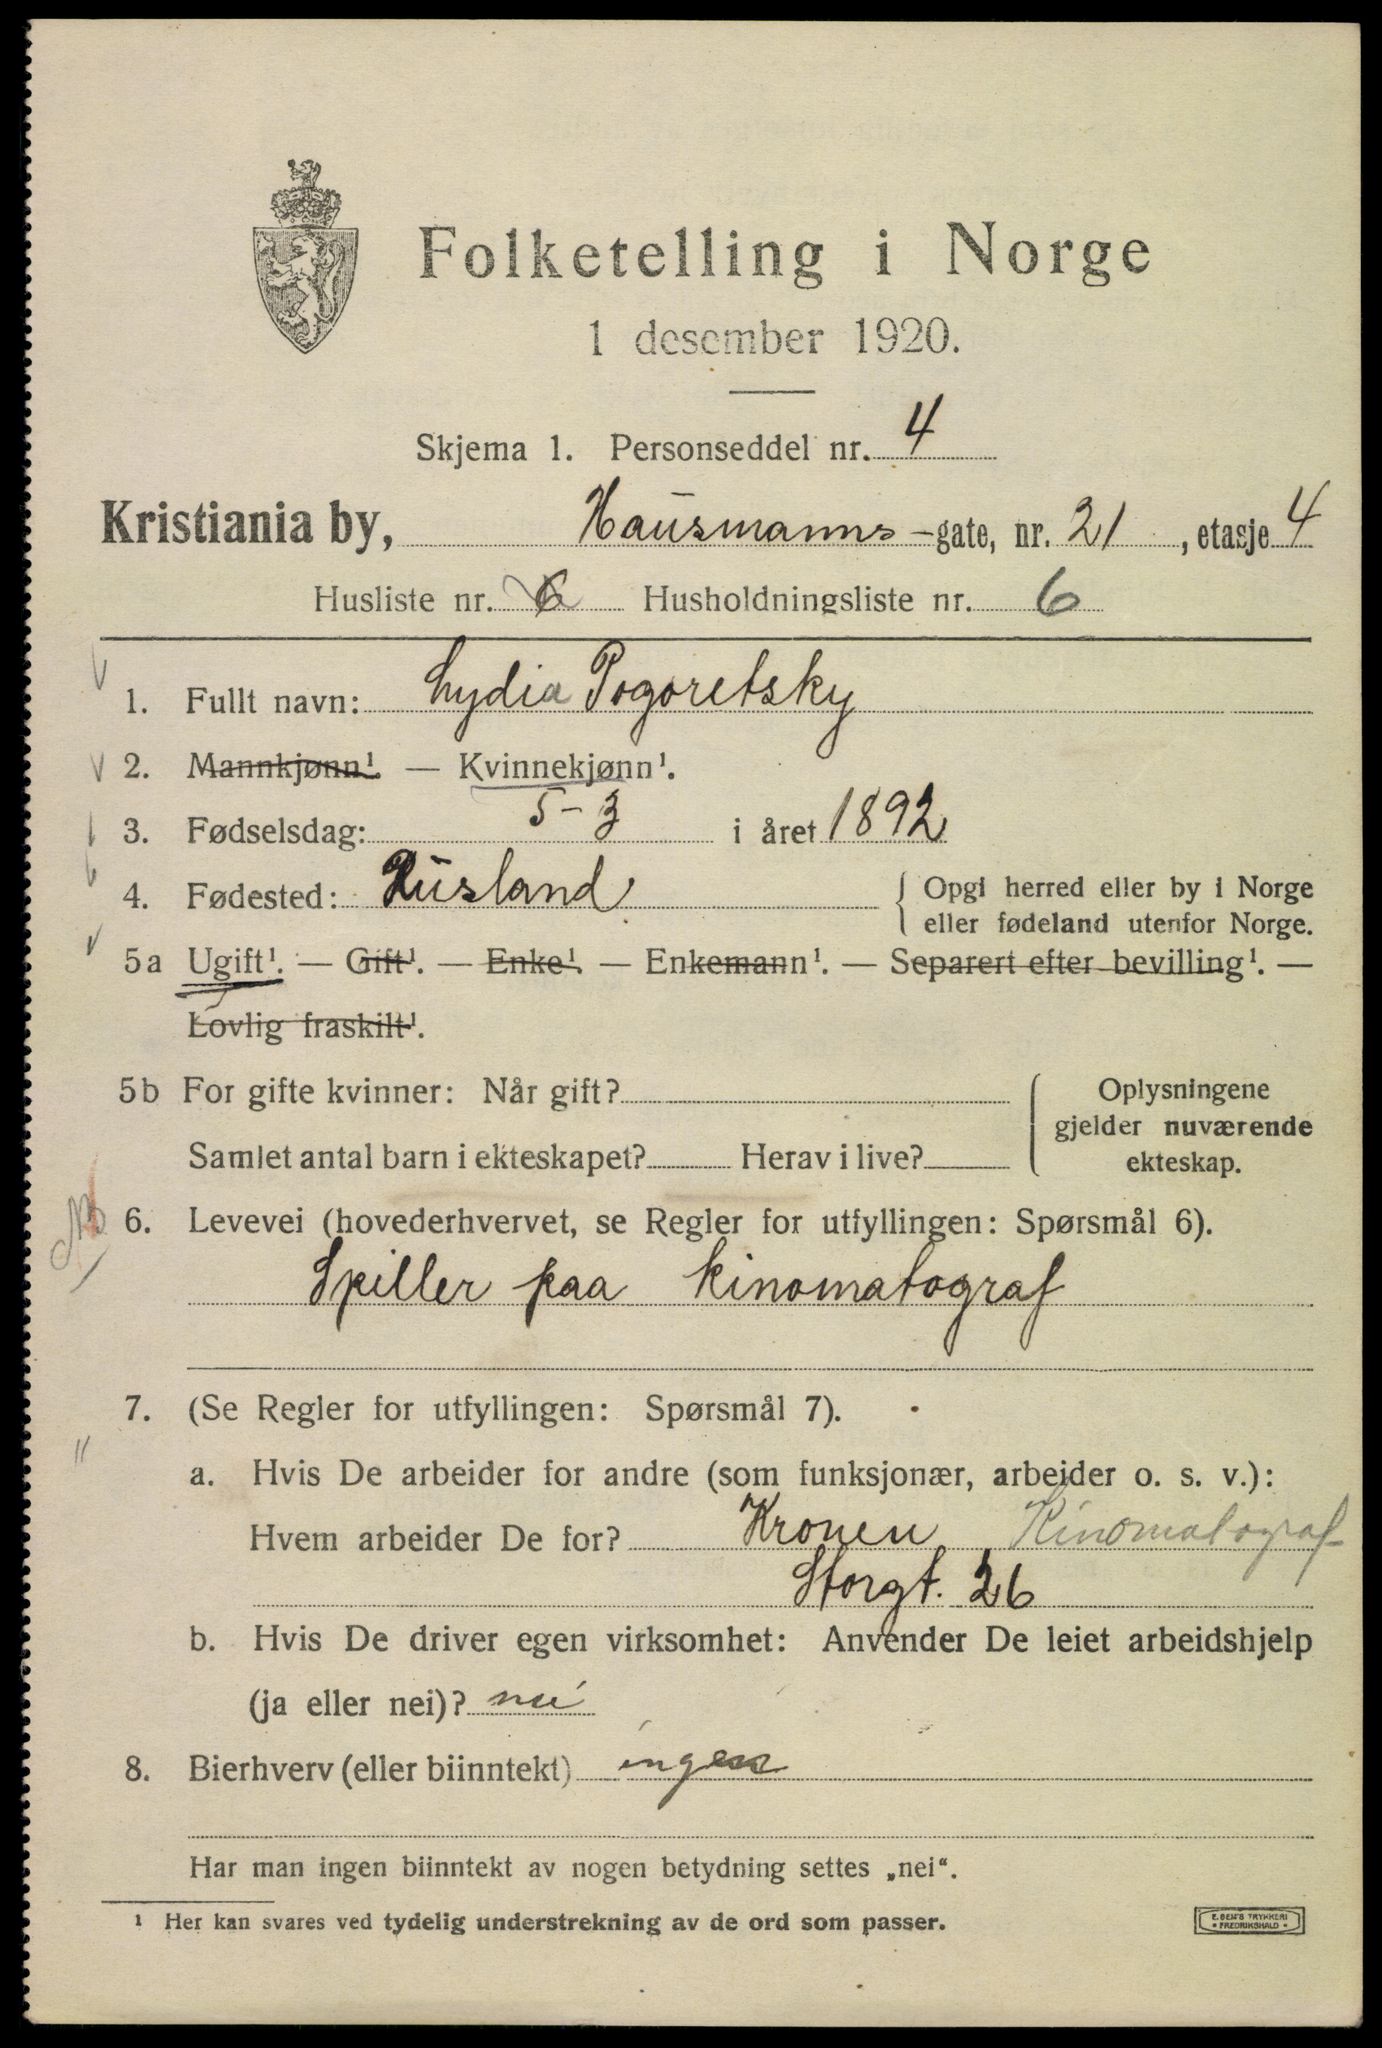 Folketelling i Norge
1 desember 1920.
Skjema 1. Personseddel nr. 4
Kristiania by, Hausmanns-gate, nr. 21, etasje 4
Husliste nr. Husholdningsliste nr. 6
1. Fullt navn: Lydia Pogoretsky
2. Mannkjønn¹. — Kvinnekjønn¹.
3. Fødselsdag: 5-3 i året 1892
4. Fødested: Rusland { Opgi herred eller by i Norge
eller fødeland utenfor Norge.
5a Ugift¹. — Gift¹. — Enke¹. — Enkemann¹. — Separert efter bevilling¹. —
Lovlig fraskilt¹.
5b For gifte kvinner: Når gift? { Oplysningene
gjelder nuværende
Samlet antal barn i ekteskapet? Herav i live? ekteskap.
6. Levevei (hovederhvervet, se Regler for utfyllingen: Spørsmål 6).
Spiller paa kinomatograf
7. (Se Regler for utfyllingen: Spørsmål 7).
a. Hvis De arbeider for andre (som funksjonær, arbeider o. s. v.):
Hvem arbeider De for? Kronen Kinomatograf
Storgt. 26
b. Hvis De driver egen virksomhet: Anvender De leiet arbeidshjelp
(ja eller nei)? nei
8. Bierhverv (eller biinntekt) ingen
Har man ingen biinntekt av nogen betydning settes „nei“.
¹ Her kan svares ved tydelig understrekning av de ord som passer.
E. SEM'S TRYKKERI
• FREDRIKSHALD •